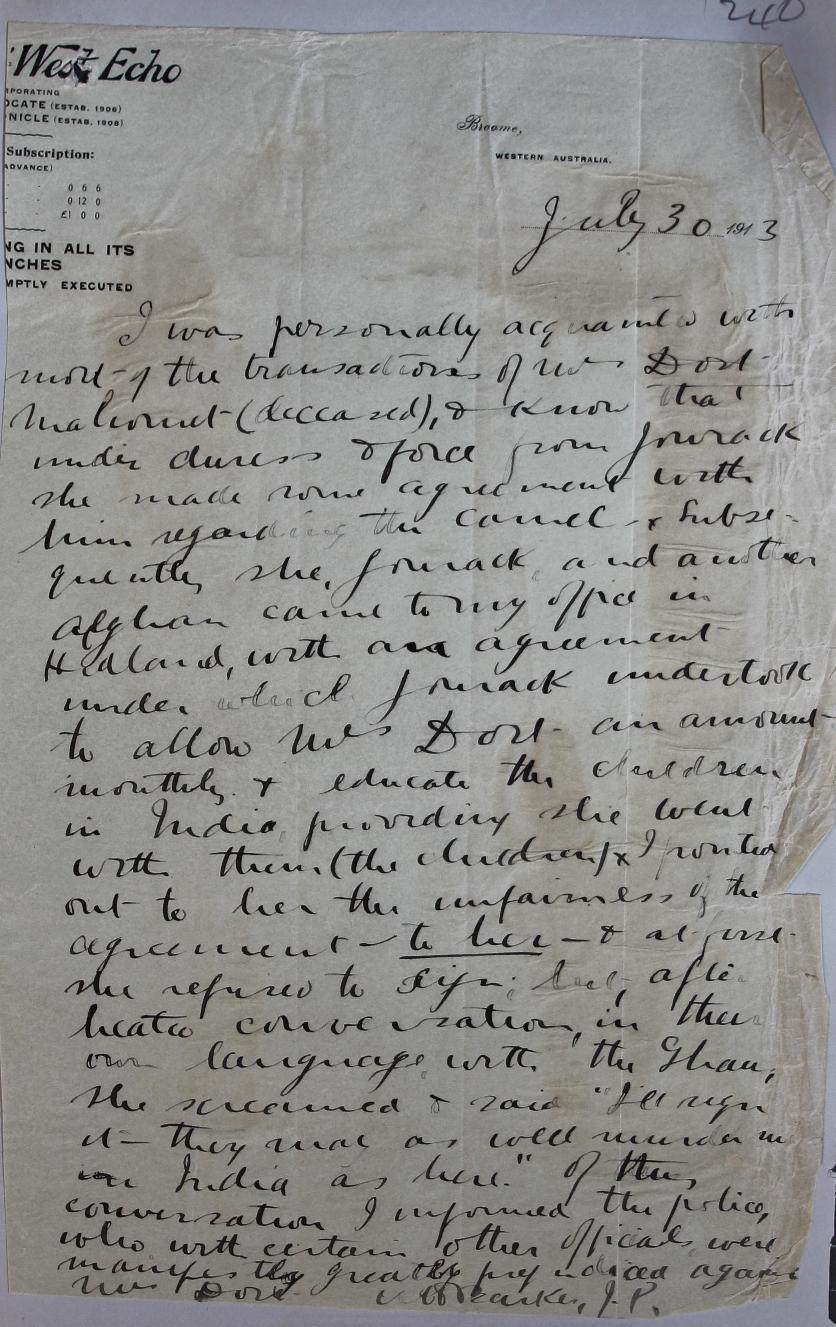 240
West Echo
PORATING
OCATE (ESTAB. 1906)
NICLE (ESTAB. 1908)
Subscription:
ADVANCE)
- - 0 6 6
- - 0 12 0
- - £1 0 0
NG IN ALL ITS
NCHES
MPTLY EXECUTED
Broome,
WESTERN AUSTRALIA.
July 30 1913
I was personally acquainted with
most of the transactions of Mrs Dost
Mahomet (deceased), & know that
under duress & force from Jowrack
she made some agreement with
him regarding the camel & Subse-
quently she, Jowrack and another
afghan came to my office in
Hedland, with an agreement
under which Jowrack undertook
to allow Mrs Dost an amount
monthly & educate the children
in India, providing she went
with them (the children) & I pointed
out to her the unfairness of the
agreement — to her — & at first
she refused to sign; but, after
heated conversation, in their
own language, with the Ghan,
she screamed & said "I'll sign
it — they may as well murder me
in India as here." Of this
conversation I informed the police,
who with certain other officials were
manifestly greatly prejudiced against
Mrs Dost. J.P.